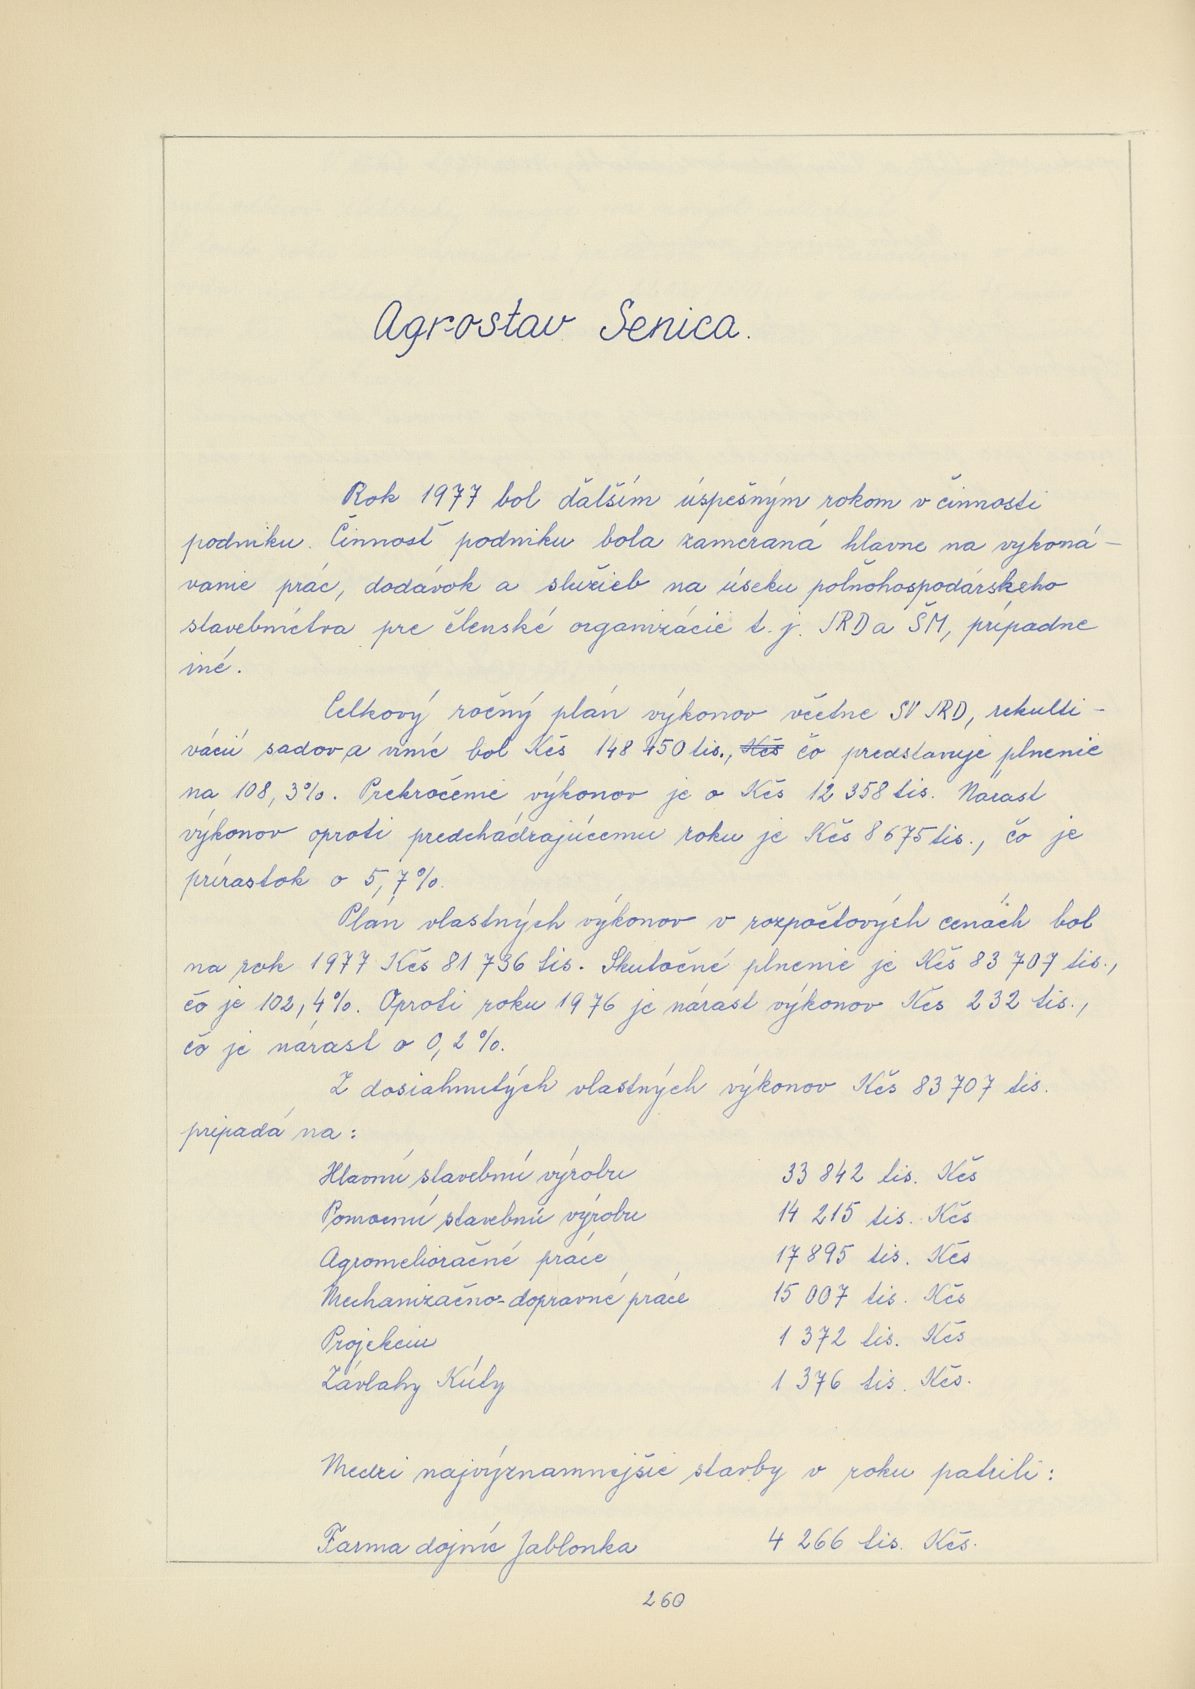 Agrostav Senica.
Rok 1977 bol ďalším úspešným rokom v činnosti
podniku. Činnosť podniku bola zameraná hlavne na vykoná-
vanie prác, dodávok a služieb na úseku poľnohospodárskeho
stavebníctva pre členské organizácie t. j. JRD a ŠM, prípadne
iné.
Celkový ročný plán výkonov včetne SV JRD, rekulti-
vácií sadov a viníc bol Kčs 148 450 tis., Kčs čo predstavuje plnenie
na 108,3%. Prekročenie výkonov je o Kčs 12 358 tis. Nárast
výkonov oproti predchádzajúcemu roku je Kčs 8 675 tis., čo je
prírastok o 5,7%.
Plán vlastných výkonov v rozpočtových cenách bol
na rok 1977 Kčs 81 736 tis. Skutočné plnenie je Kčs 83 707 tis.,
čo je 102,4%. Oproti roku 1976 je nárast výkonov Kčs 232 tis.,
čo je nárast o 0,2%.
Z dosiahnutých vlastných výkonov Kčs 83 707 tis.
pripadá na:
Hlavnú stavebnú výrobu 33 842 tis. Kčs
Pomocnú stavebnú výrobu 14 215 tis. Kčs
Agromelioračné práce 17 895 tis. Kčs
Mechanizačno-dopravné práce 15 007 tis. Kčs
Projekciu 1 372 tis. Kčs
Závlahy Kúty 1 376 tis. Kčs.
Medzi najvýznamnejšie stavby v roku patrili:
Farma dojníc Jablonka 4 266 tis. Kčs.
260